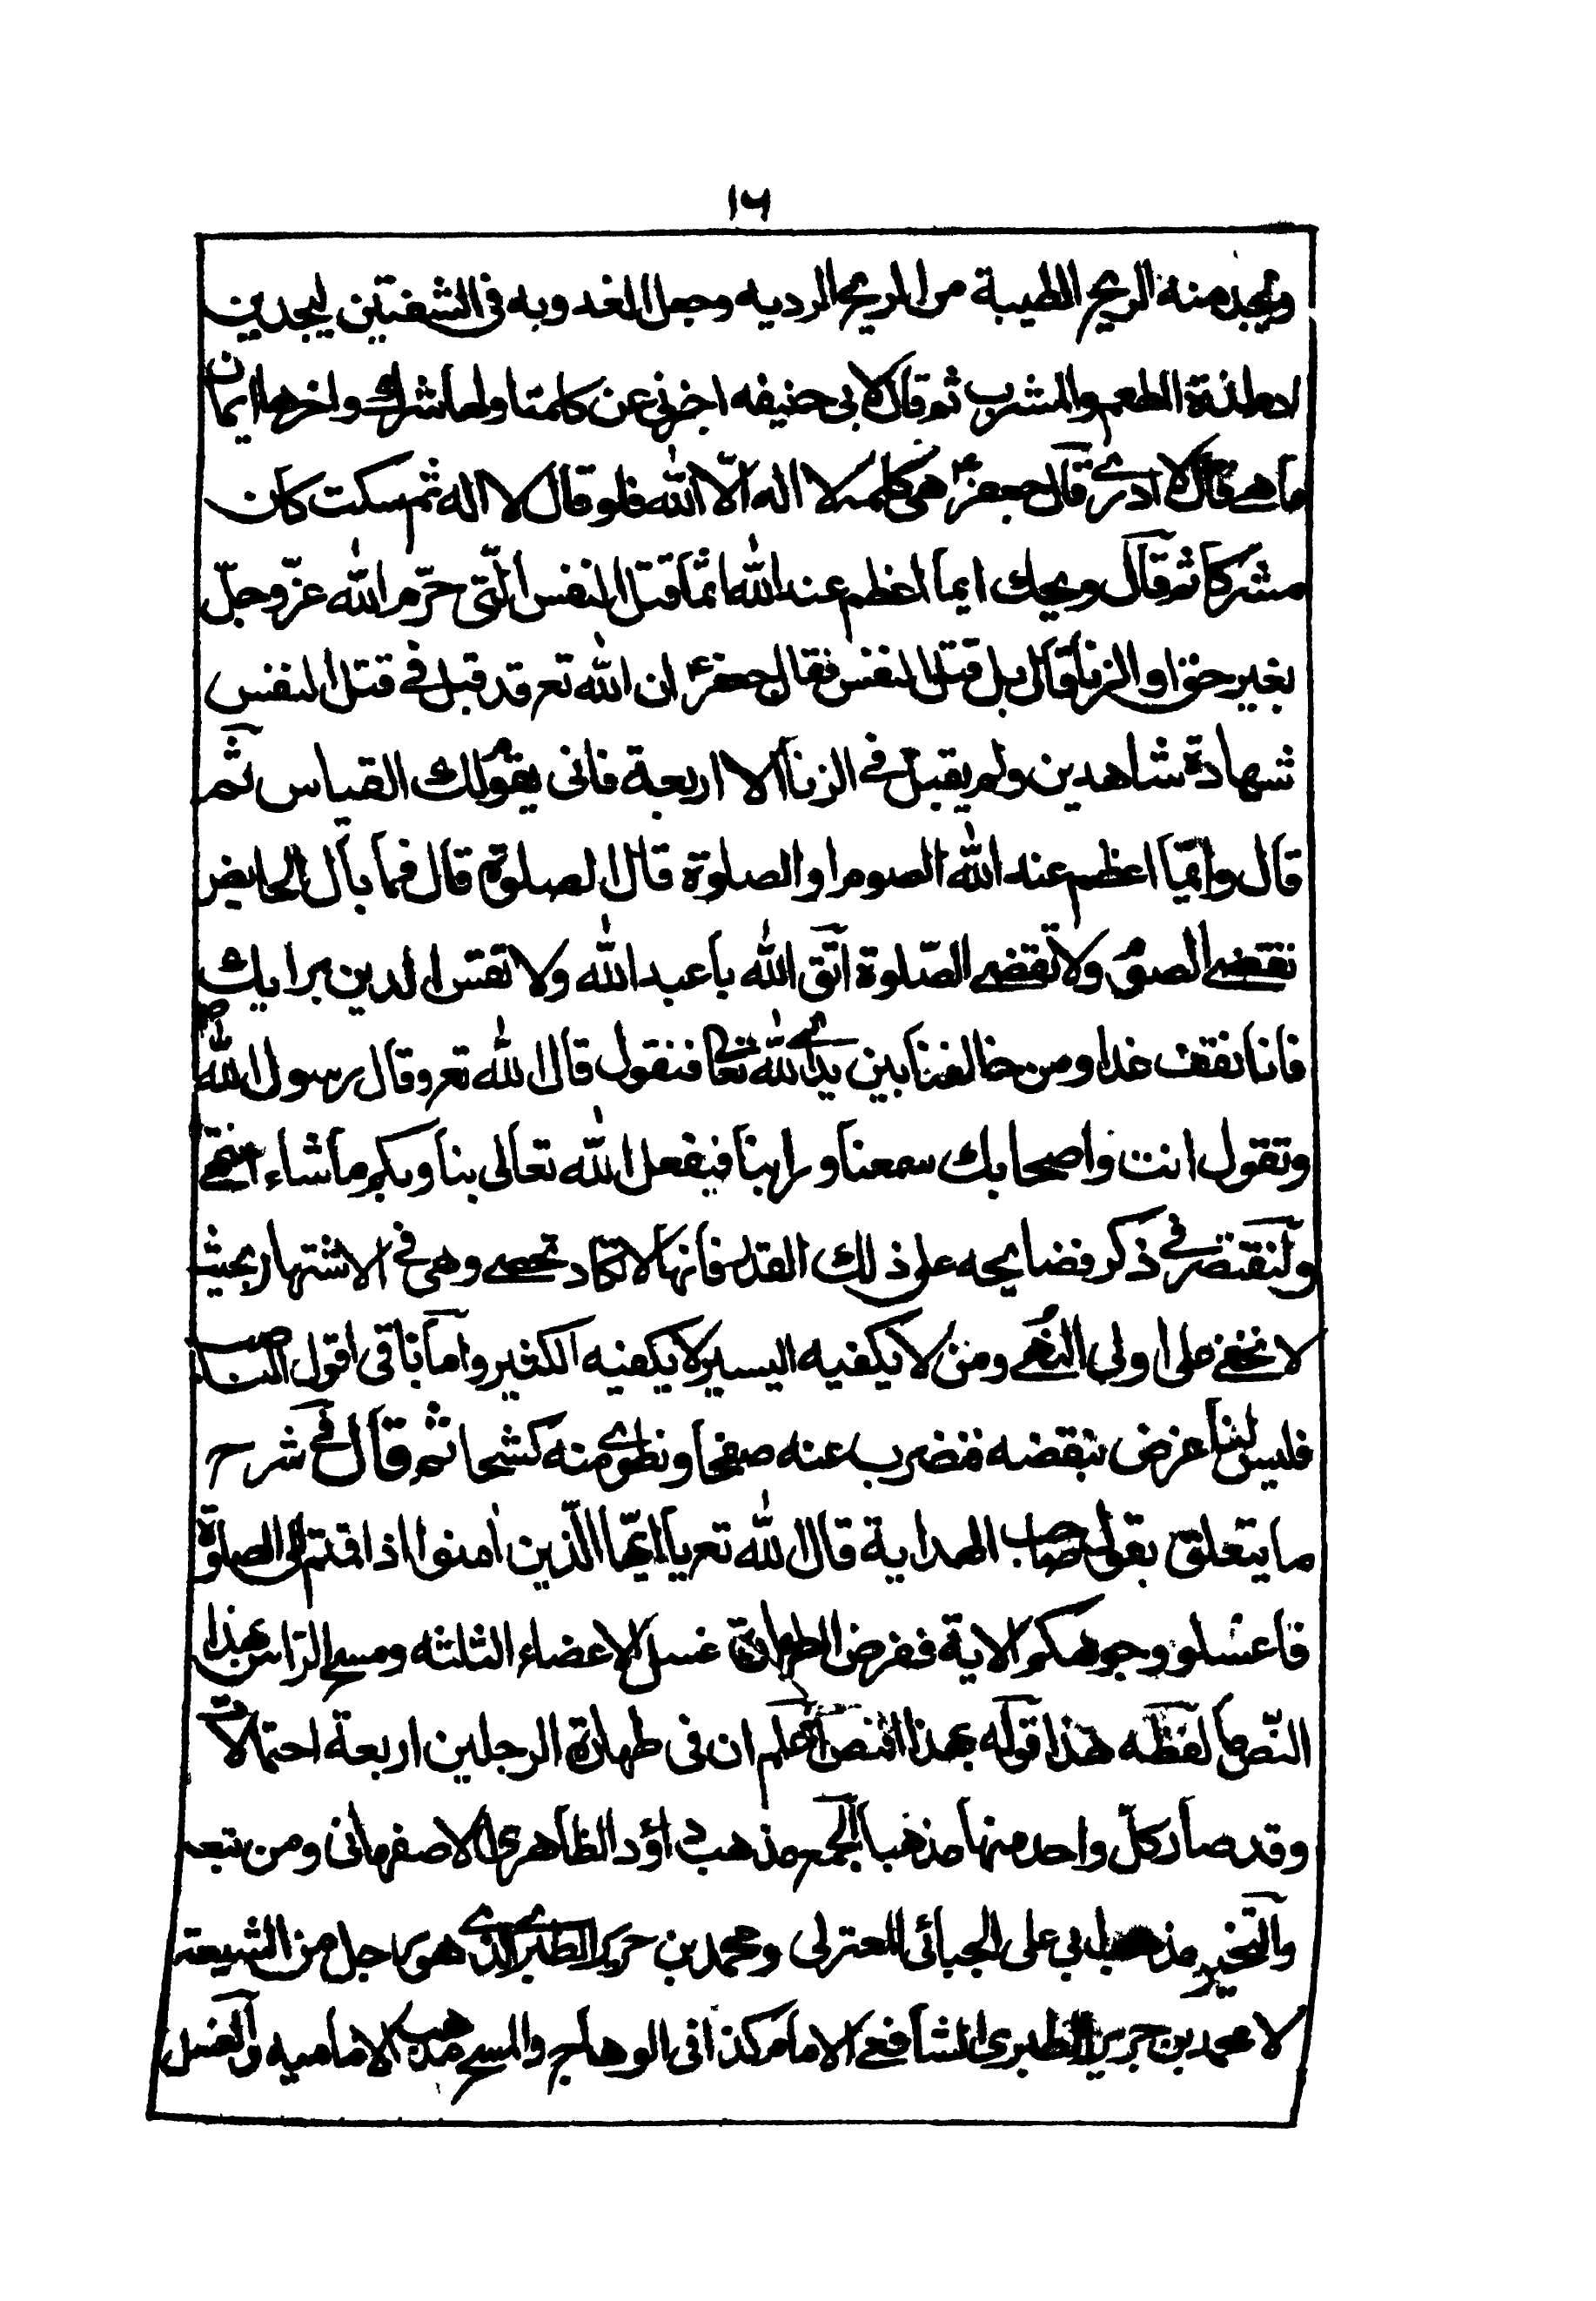 ١٦
ويجد منه الريح الطيبة من الريح الرديه وجعل الغدوبه فى الشفتين ليجد بن
ادم لذة الطعم والمشرب ثم قال لابى حنيفه اخبرنى عن كلمة اولها شرك واخرها ايمان
ما هى قال لا ادرى قال جعفرؑ هى كلمة لا اله الّا الله فلو قال لا اله ثم سكت كان
مشركا ثم قال ويحك ايما اعظم عند الله اثما قتل النفس الّتى حرّم الله عزّ وجلّ
بغير حق او الزنا قال بل قتل النفس فقال جعفرؑ ان الله تعر قد قبل فى قتل النفس
شهادة شاهدين ولم يقبل فى الزنا الا اربعة فانى يقوم لك القياس ثم
قال وايّما اعظم عند الله الصوم او الصلوة قال الصلوة قال فما بال الحايض
تقضى الصوم ولا تقضى الصّلوة اتّق الله يا عبد الله ولا تقس الدين برايك
فانا نقف غدا ومن خالفنا بين يدى الله تعالى فنقول قال الله تعر وقال رسول اللهؐ
وتقول انت واصحابك سمعنا وراينا فيفعل الله تعالى بنا وبكم ما شاء انتهى
ولنقتصر فى ذكر فضايحه على ذلك القدر فانها لا تكاد تحصى وهى فى الاشتهار بحيث
لا تخفى على اولى النهى ومن لا يكفيه اليسير لا يكفيه الكثير واما باقى اقول الناصب
فليس لنا غرض بنقضه فنضرب عنه صفحا ونطوى منه كشحا ثم قال فى شرح
ما يتعلق بقول صاحب الهداية قال الله تعر يا ايّها الّذين امنوا اذا قمتم الى الصلوة
فاغسلو وجوهكم الاية ففرض الطهارة غسل الاعضاء الثلثه ومسح الرّاس بهذا
النّص ما لفظه هذا قوله بهذا النص اعلم ان فى طهارة الرجلين اربعة احتمالات
وقد صار كلّ واحد منها مذهبا الجمع مذهب داؤد الظاهرى الاصفهانى ومن تبعه
والتخيير مذهب ابى على الجبائى المعتزلى ومحمد بن جرير الطبرى الذى هو رجل من الشيعة
لا محمد بن جرير الطبرى الشافعى الامام كذا فى الوهاج والمسح مذهب الاماميه والغسل